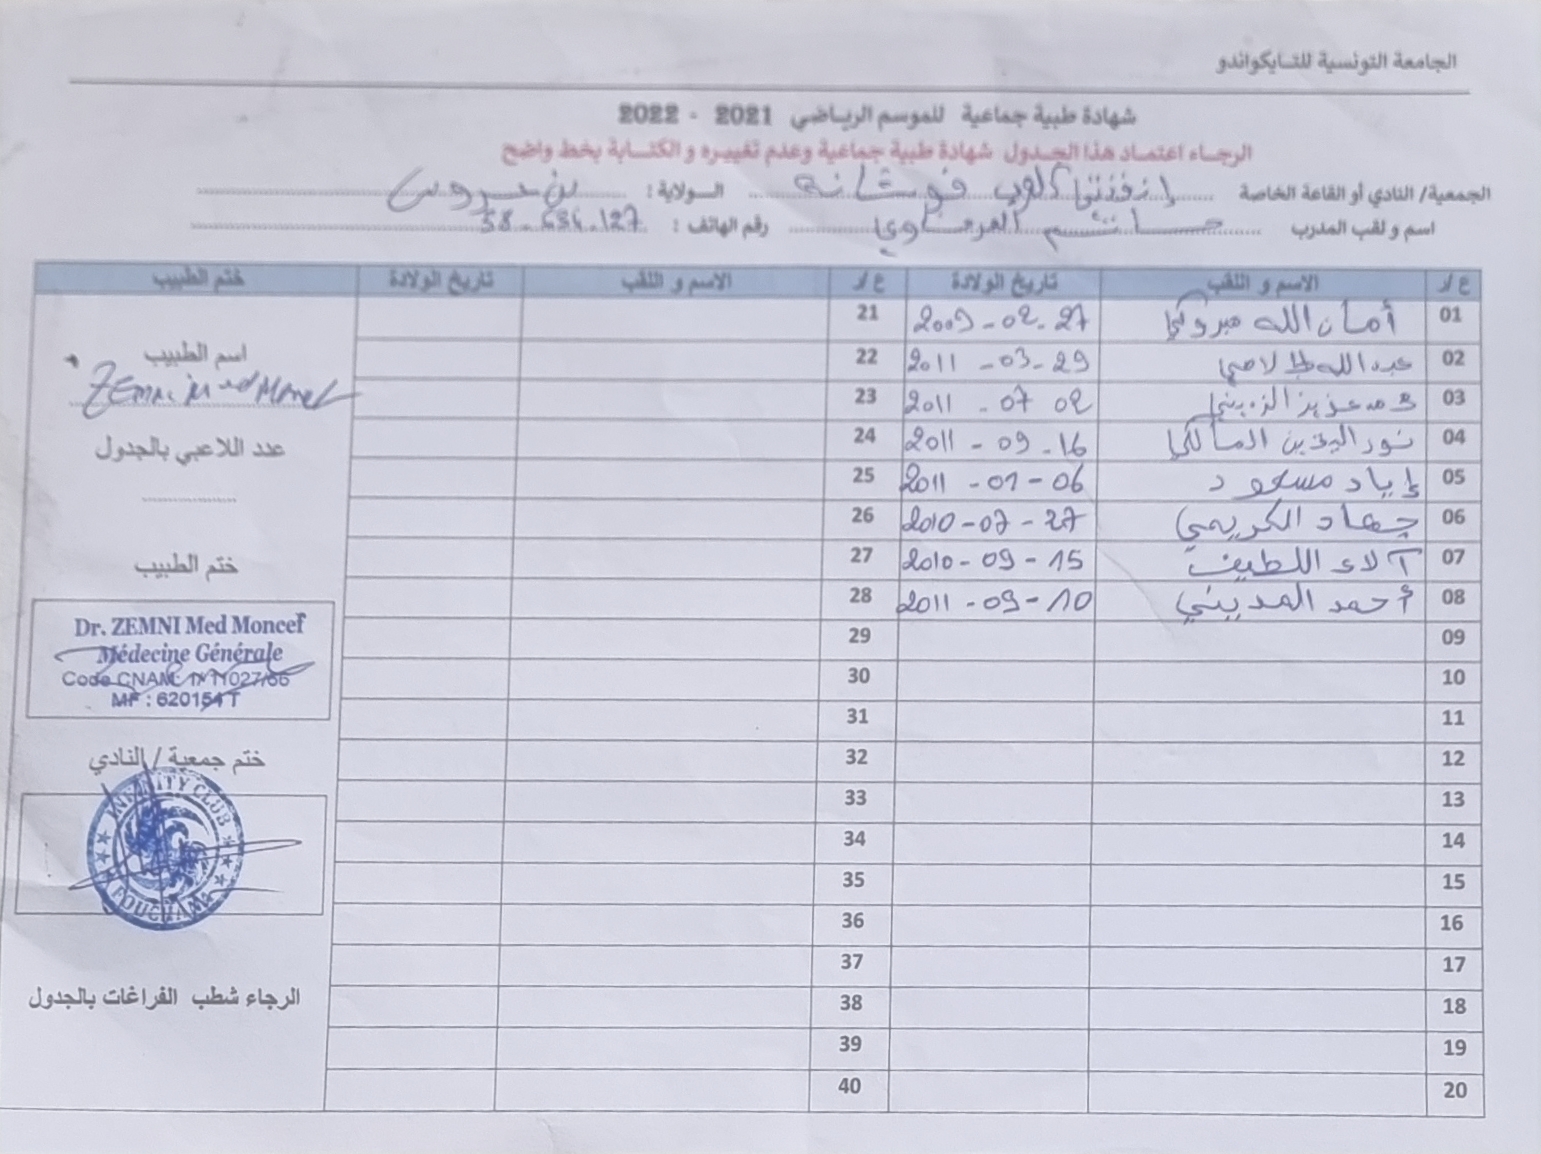 الجامعة التونسية للتايكواندو
شهادة طبية جماعية للموسم الرياضي 2021 - 2022
الرجاء اعتماد هذا الجدول شهادة طبية جماعية وعدم تغييره و الكتابة بخط واضح
الجمعية/ النادي أو القاعة الخاصة إنفنتي كلوب فوشانة الولاية : بن عروس
اسم و لقب المدرب حاتم العرفاوي رقم الهاتف : 58.634.127
ع / ر الاسم و اللقب تاريخ الولادة ع / ر الاسم و اللقب تاريخ الولادة ختم الطبيب
01 أمان الله مبروكي 2009-02-27 21
02 عبد الله 2011-03-29 22
03 محمد عزيز الزيني 2011-07 02 23
04 نور اليقين المالكي 2011-09-16 24
05 إياد مسعود 2011-01-06 25
06 جهاد الكريمي 2010-07-27 26
07 آلاء اللطيف 2010-09-15 27
08 أحمد المديني 2011-09-10 28
09 29
10 30
11 31
12 32
13 33
14 34
15 35
16 36
17 37
18 38
19 39
20 40
اسم الطبيب
ZEMNI Med Moncef
عدد اللاعبي بالجدول
ختم الطبيب
Dr. ZEMNI Med Moncef
Médecine Générale
Code CNAM: 1/11027/66
MF : 620154 T
ختم جمعية / النادي
INFINITY CLUB
FOUCHANA
الرجاء شطب الفراغات بالجدول